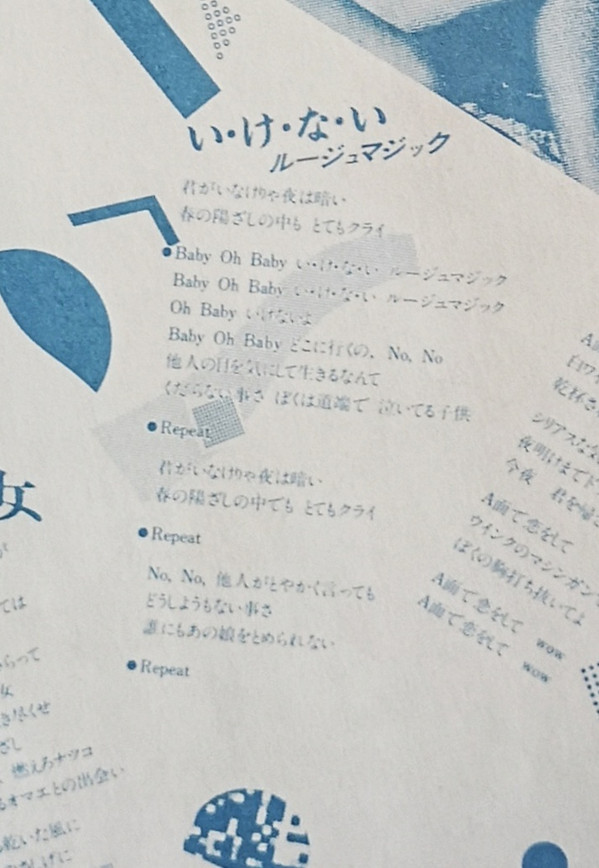 い・け・な・い
ルージュマジック
君がいなけりゃ夜は暗い
春の陽ざしの中も とてもクライ
●Baby Oh Baby い・け・な・い ルージュマジック
Baby Oh Baby い・け・な・い ルージュマジック
Oh Baby いけないよ
Baby Oh Baby どこに行くの、No, No
他人の目を気にして生きるなんて
くだらない事さ ぼくは道端で 泣いてる子供
●Repeat
君がいなけりゃ夜は暗い
春の陽ざしの中でも とてもクライ
●Repeat
No, No, 他人がとやかく言っても
どうしようもない事さ
誰にもあの娘をとめられない
●Repeat
女
ては
らって
女
き尽くせ
ざし
燃えろナツコ
オマエとの出会い
乾いた風に
白ワイ
乾杯さ
シリアスな
夜明けまでド
今夜 君を帰さ
A面で恋をして
ウインクのマシンガンで
ぼくの胸打ち抜いてよ
A面で恋をして wow
A面で恋をして wow